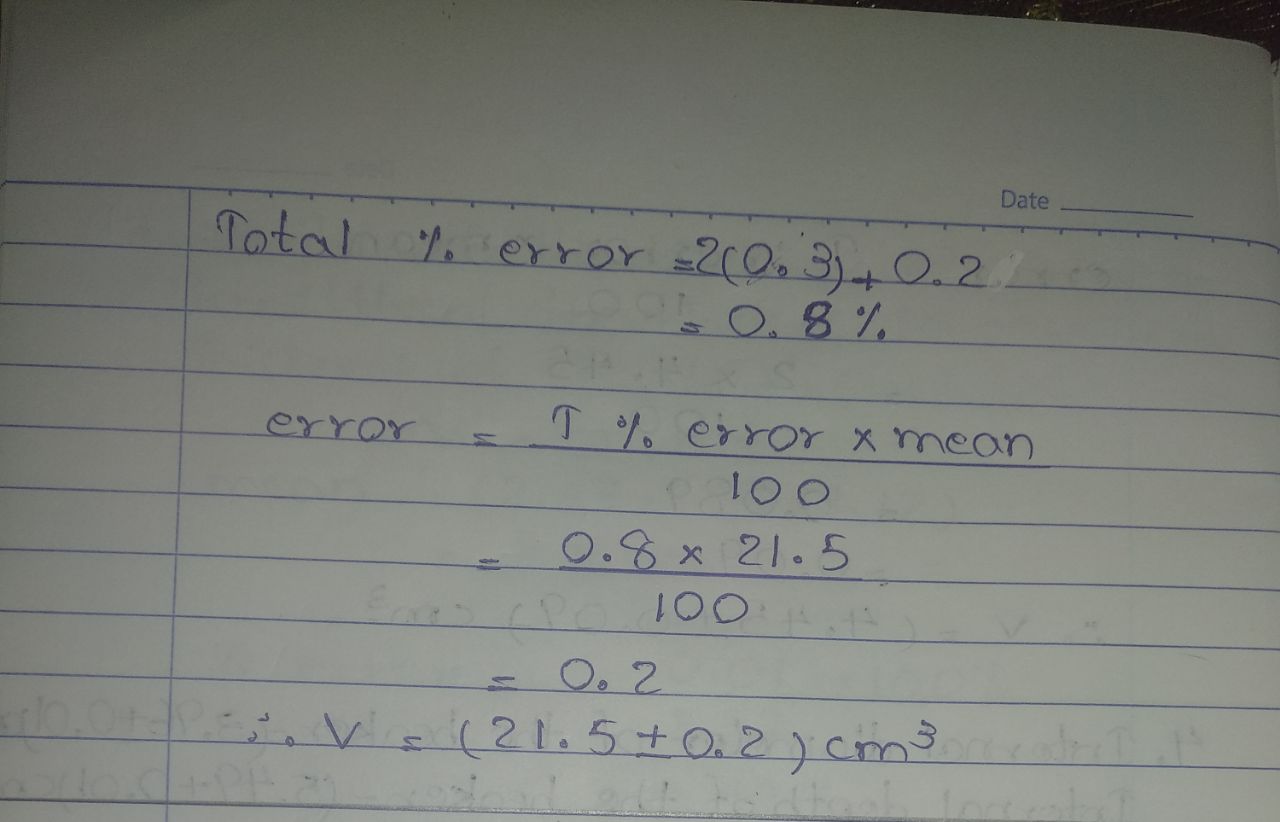 Date
Total % error = 2(0.3) + 0.2
= 0.8 %
error = T % error x mean
100
= 0.8 x 21.5
100
= 0.2
∴ V = (21.5 ± 0.2) cm³